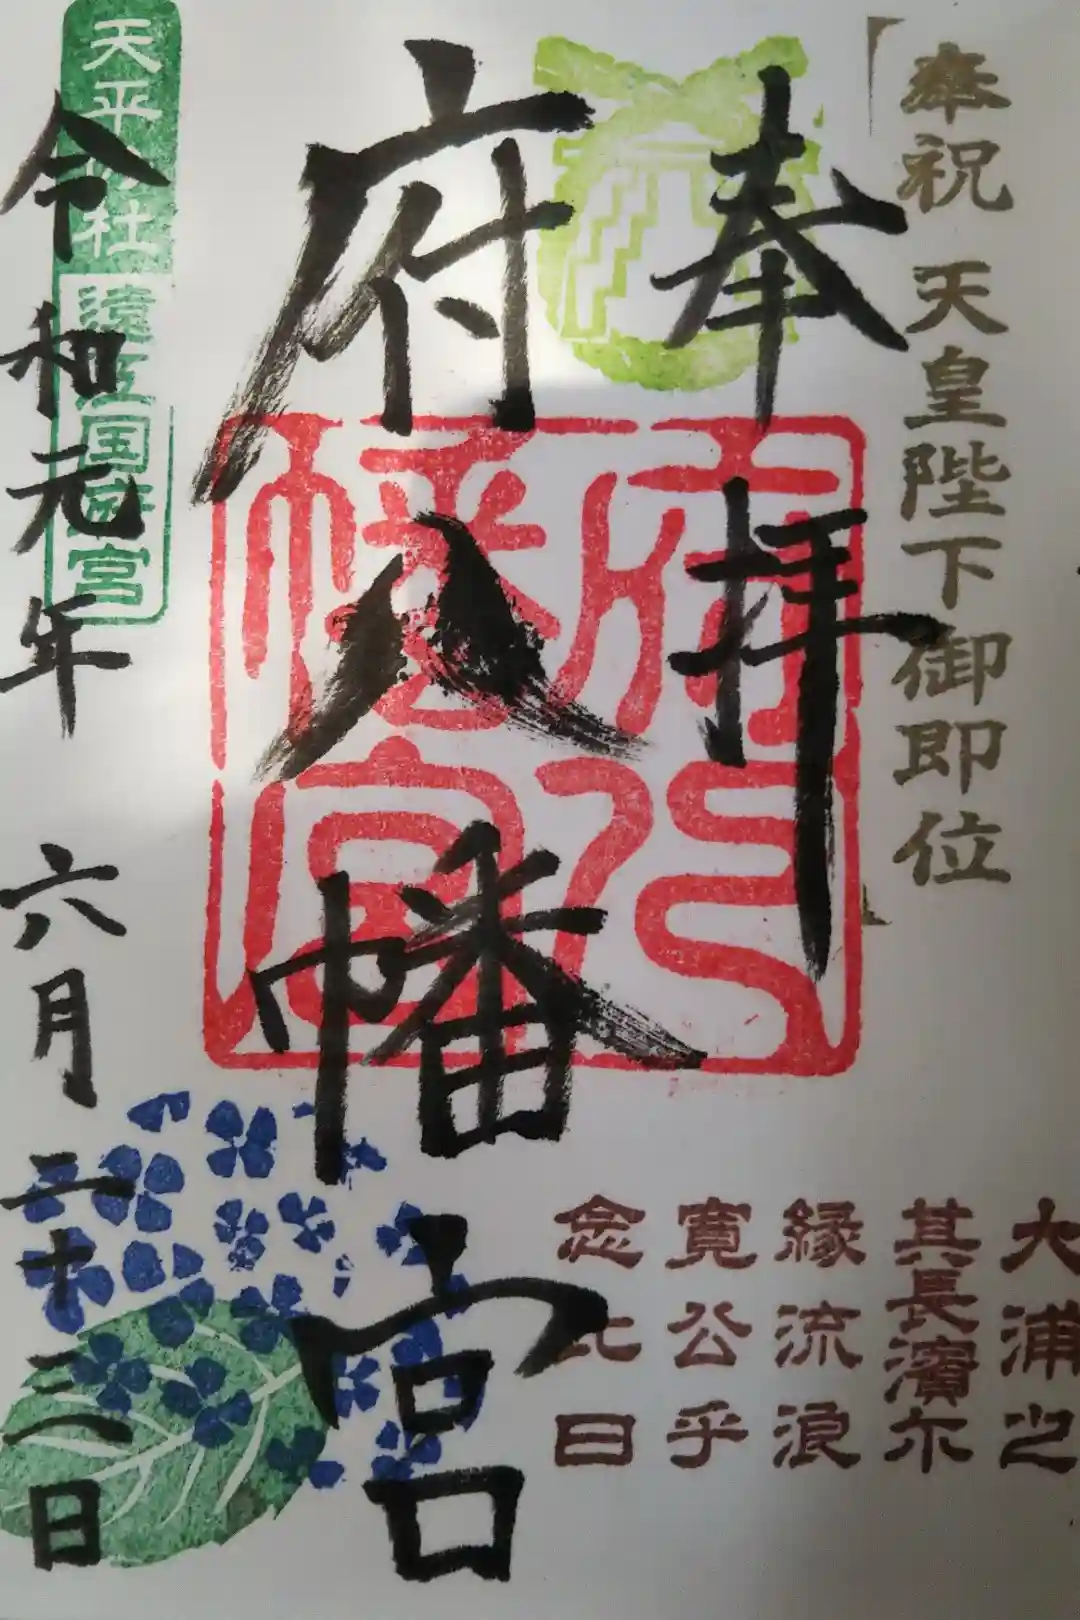 奉祝 天皇陛下御即位
奉拝
府八幡宮
府八幡宮
天平の社
遠江国府宮
令和元年 六月二十三日
大浦之
其長濱尓
縁流浪
寛公乎
念比日